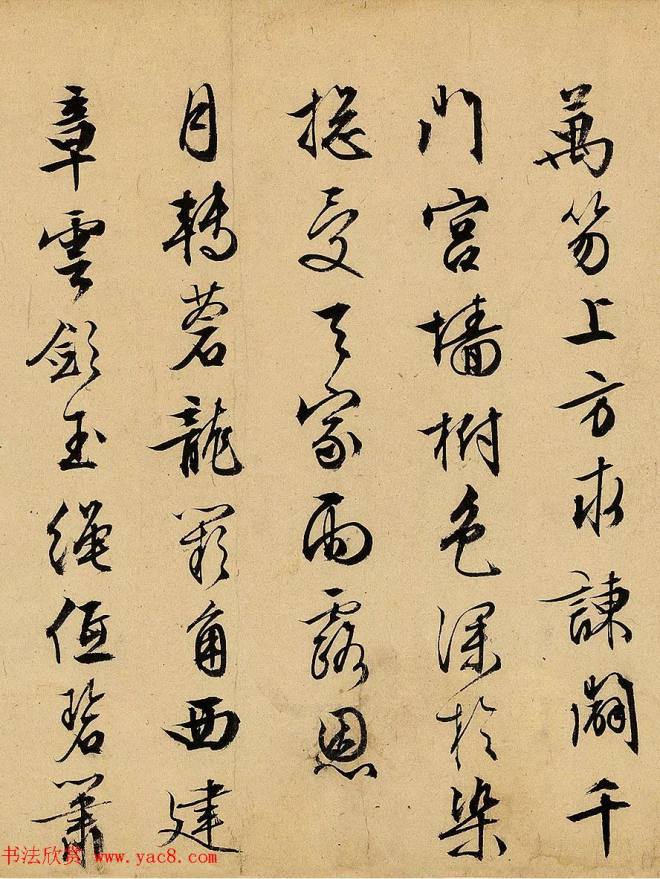 萬笏上方求諫闢千
門宮墻樹色深於染
揔受天家雨露恩
月轉蒼龍闕角西建
章雲歛玉繩低碧簫
书法欣赏 www.yac8.com